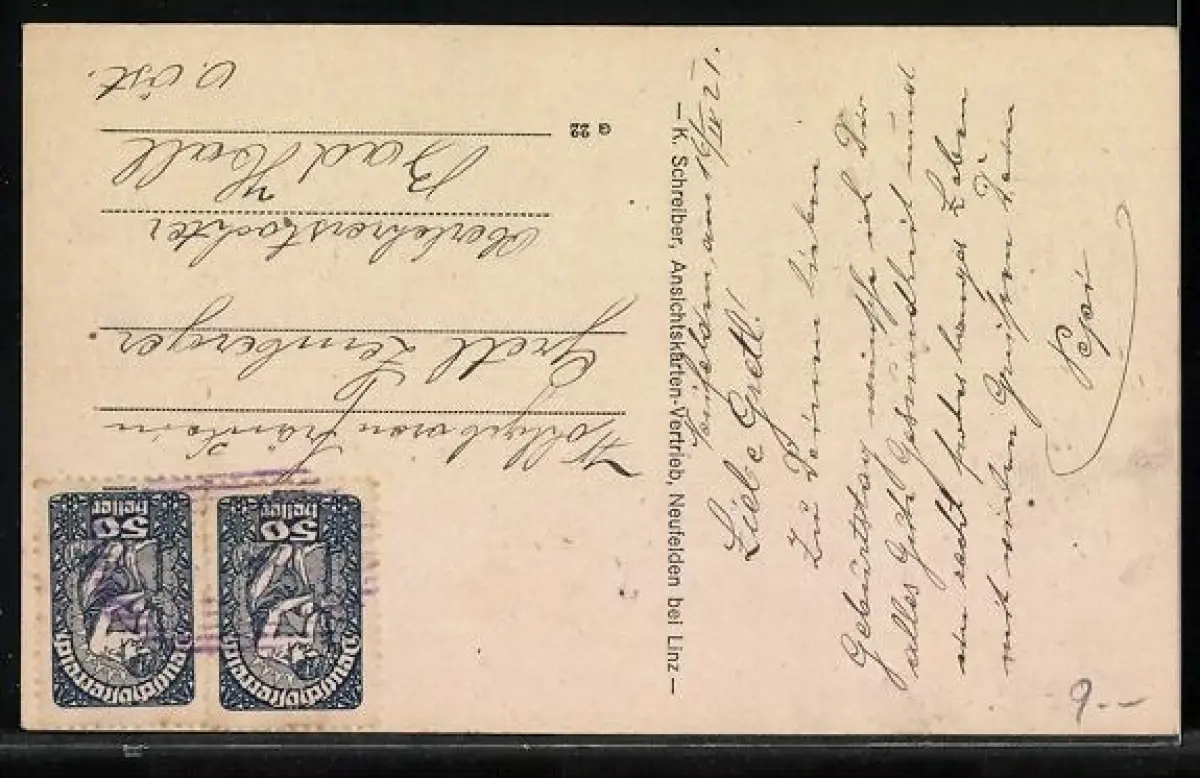 Neufelden, am 16/IV 21.
Liebe Gretl!
Zu Deinem lieben
Geburtstag wünsche ich Dir
alles Gute Gesundheit und
ein recht gutes langes Leben
mit vielen Grüßen Dein
Pepi
— K. Schreiber, Ansichtskarten-Vertrieb, Neufelden bei Linz —
G 22
Wohlgeboren Fräulein
Gretl
Oberlehrerstochter
Bad Hall
O. öst.
50
Heller
Deutschösterreich
50
Heller
Deutschösterreich
9.--